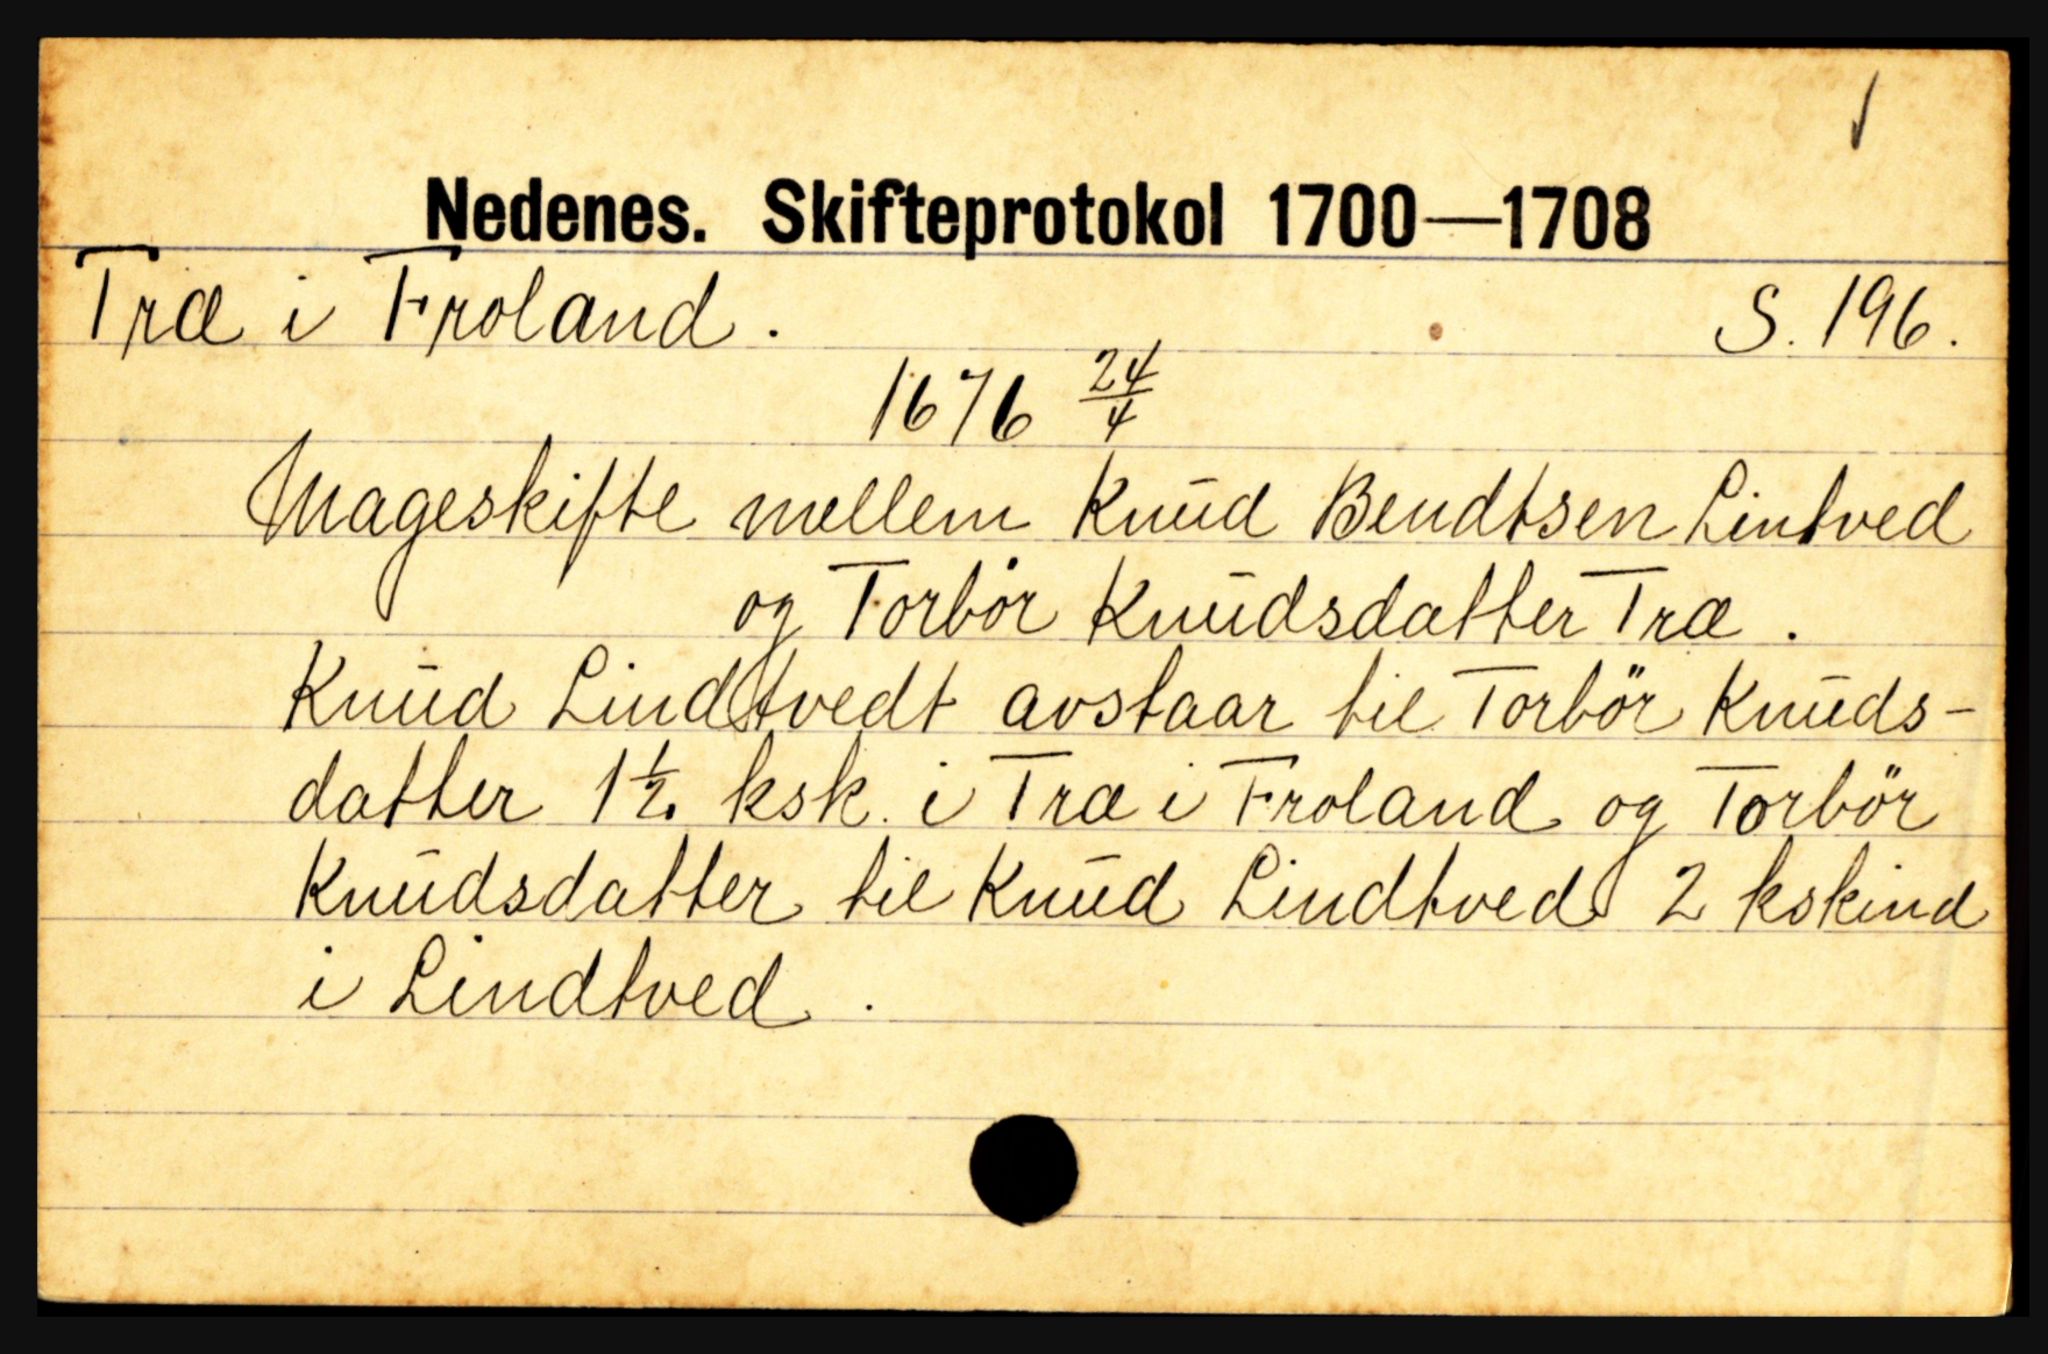 Nedenes. Skifteprotokol 1700—1708
Træ i Froland. S. 196.
1676 24/4
Mageskifte mellem Knud Bendtsen Lintved
og Torbør Knudsdatter Træ.
Knud Lindtvedt avstaar til Torbör Knuds-
datter 1 1/2 ksk. i Træ i Froland og Torbör
Knudsdatter til Knud Lindtved 2 kskind
i Lindtved.